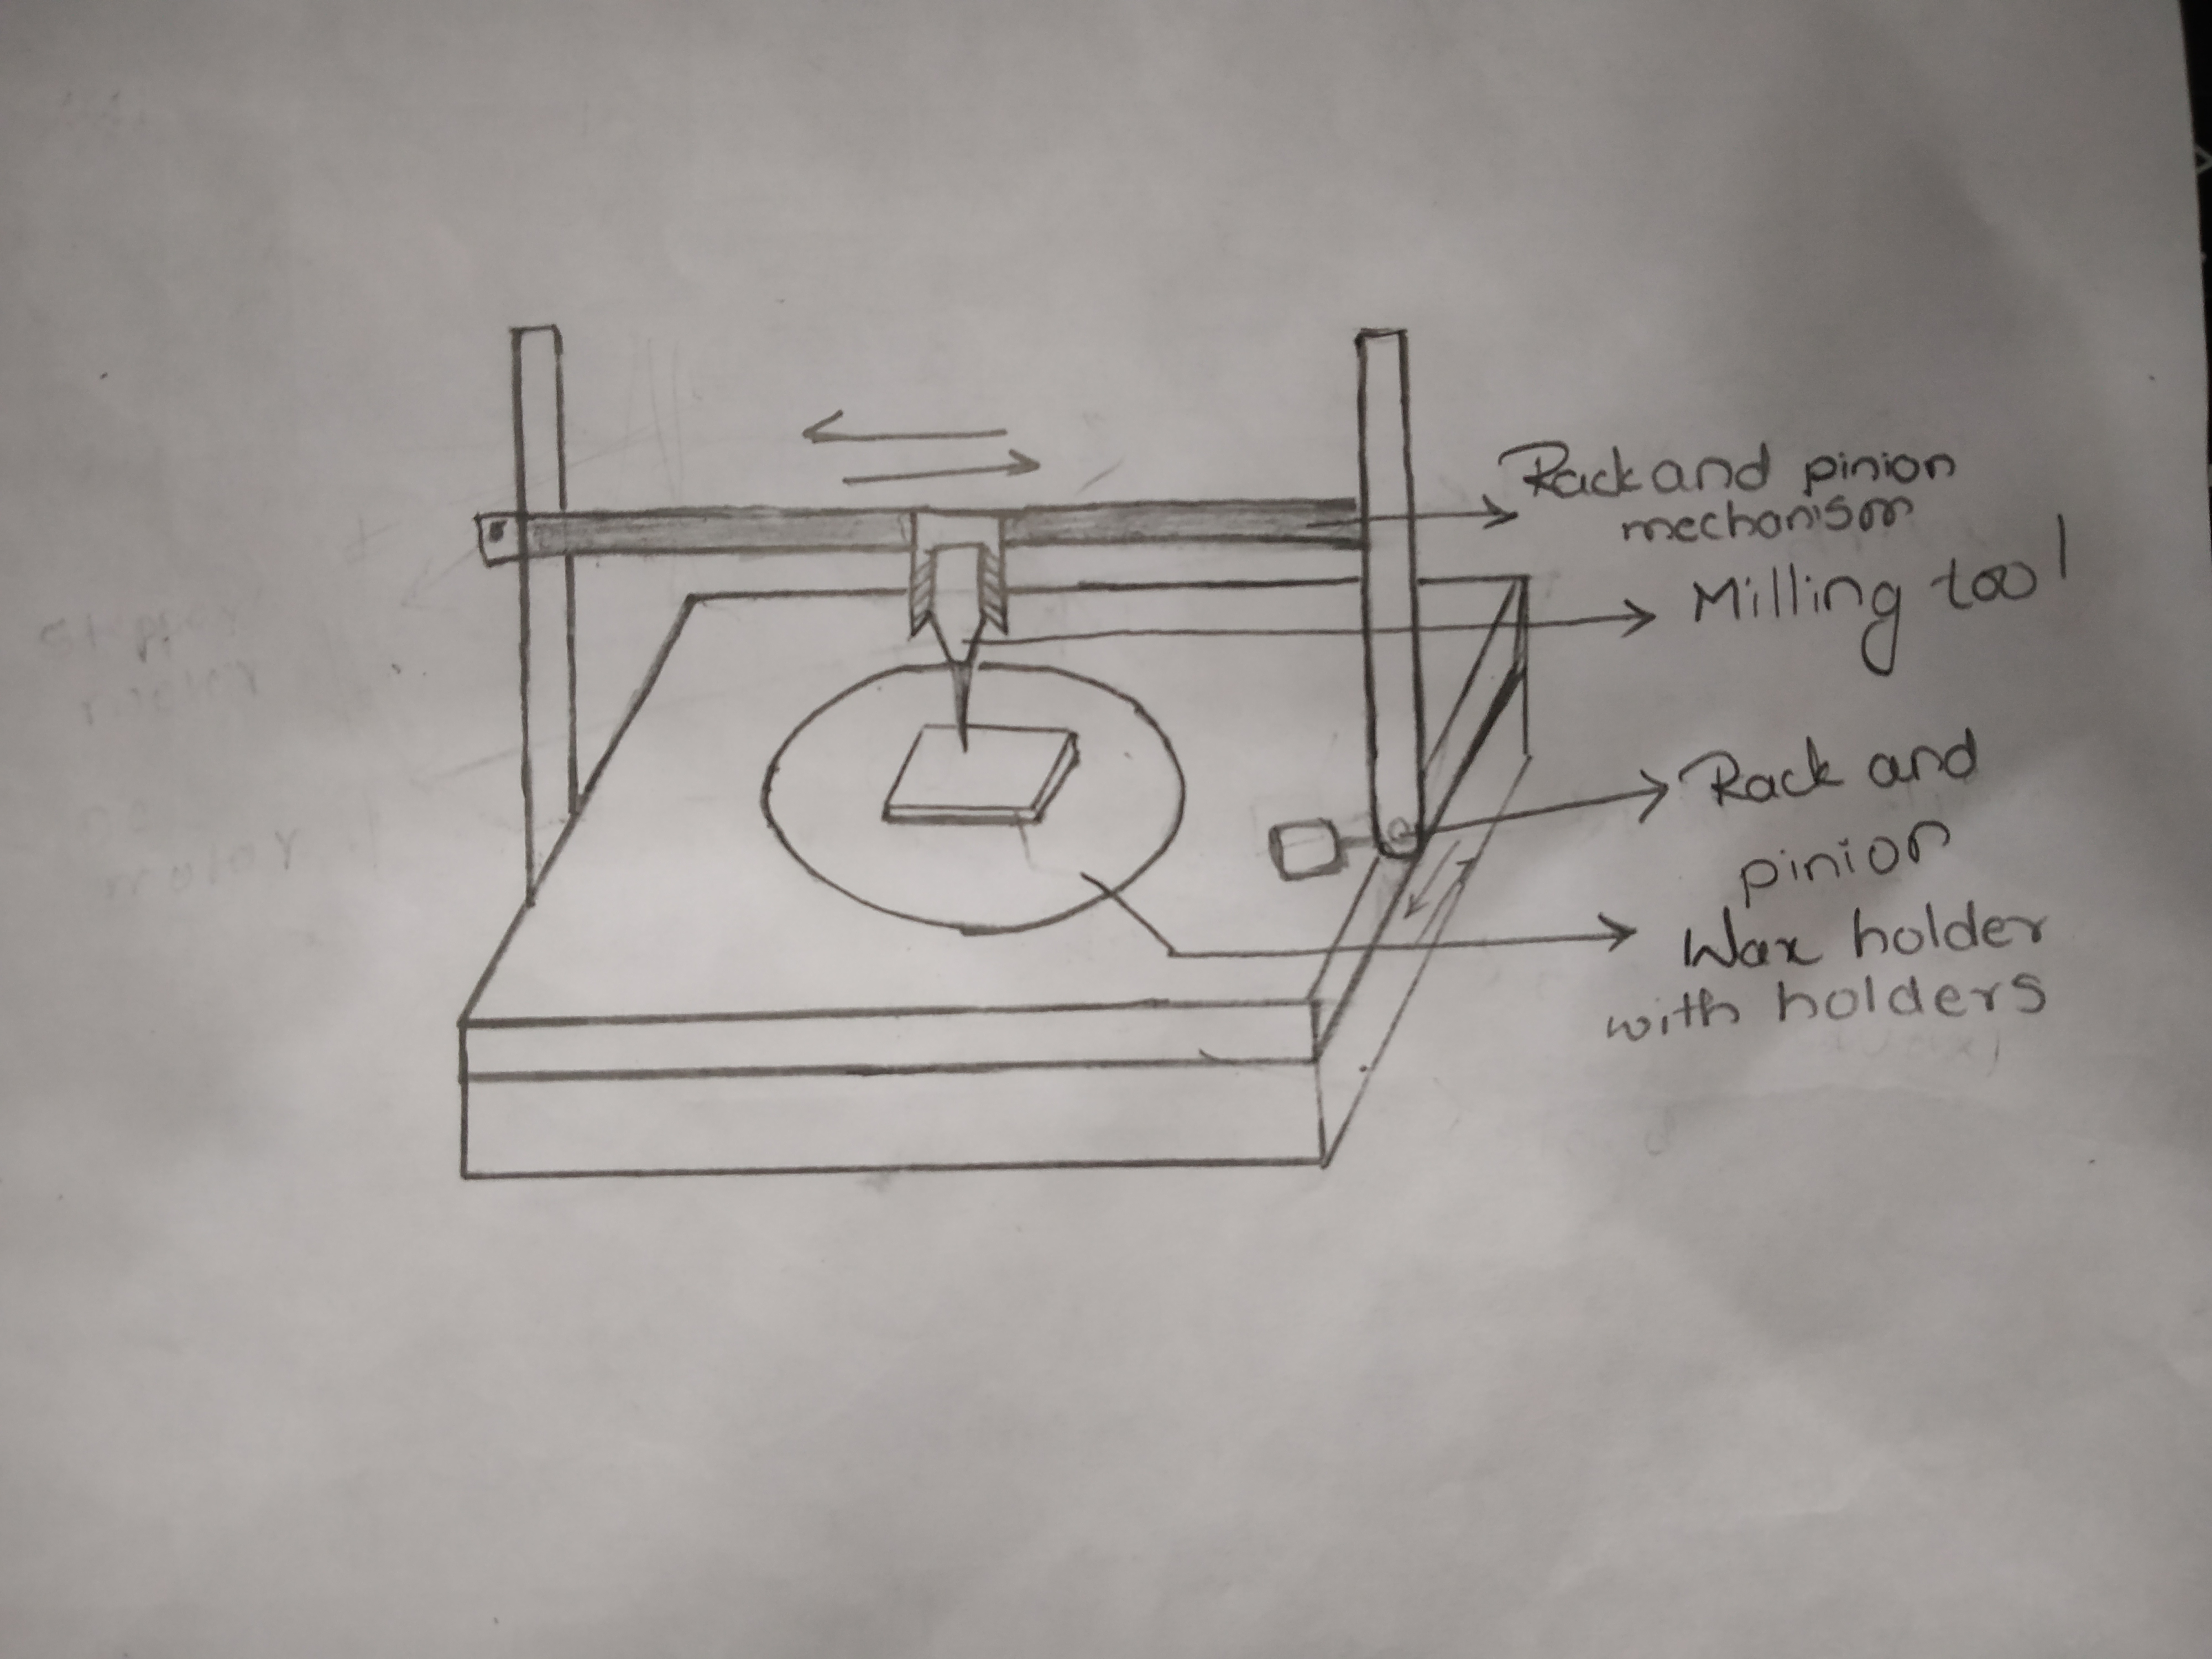 Rack and pinion
mechanism
Milling tool
Rack and
pinion
Wax holder
with holders